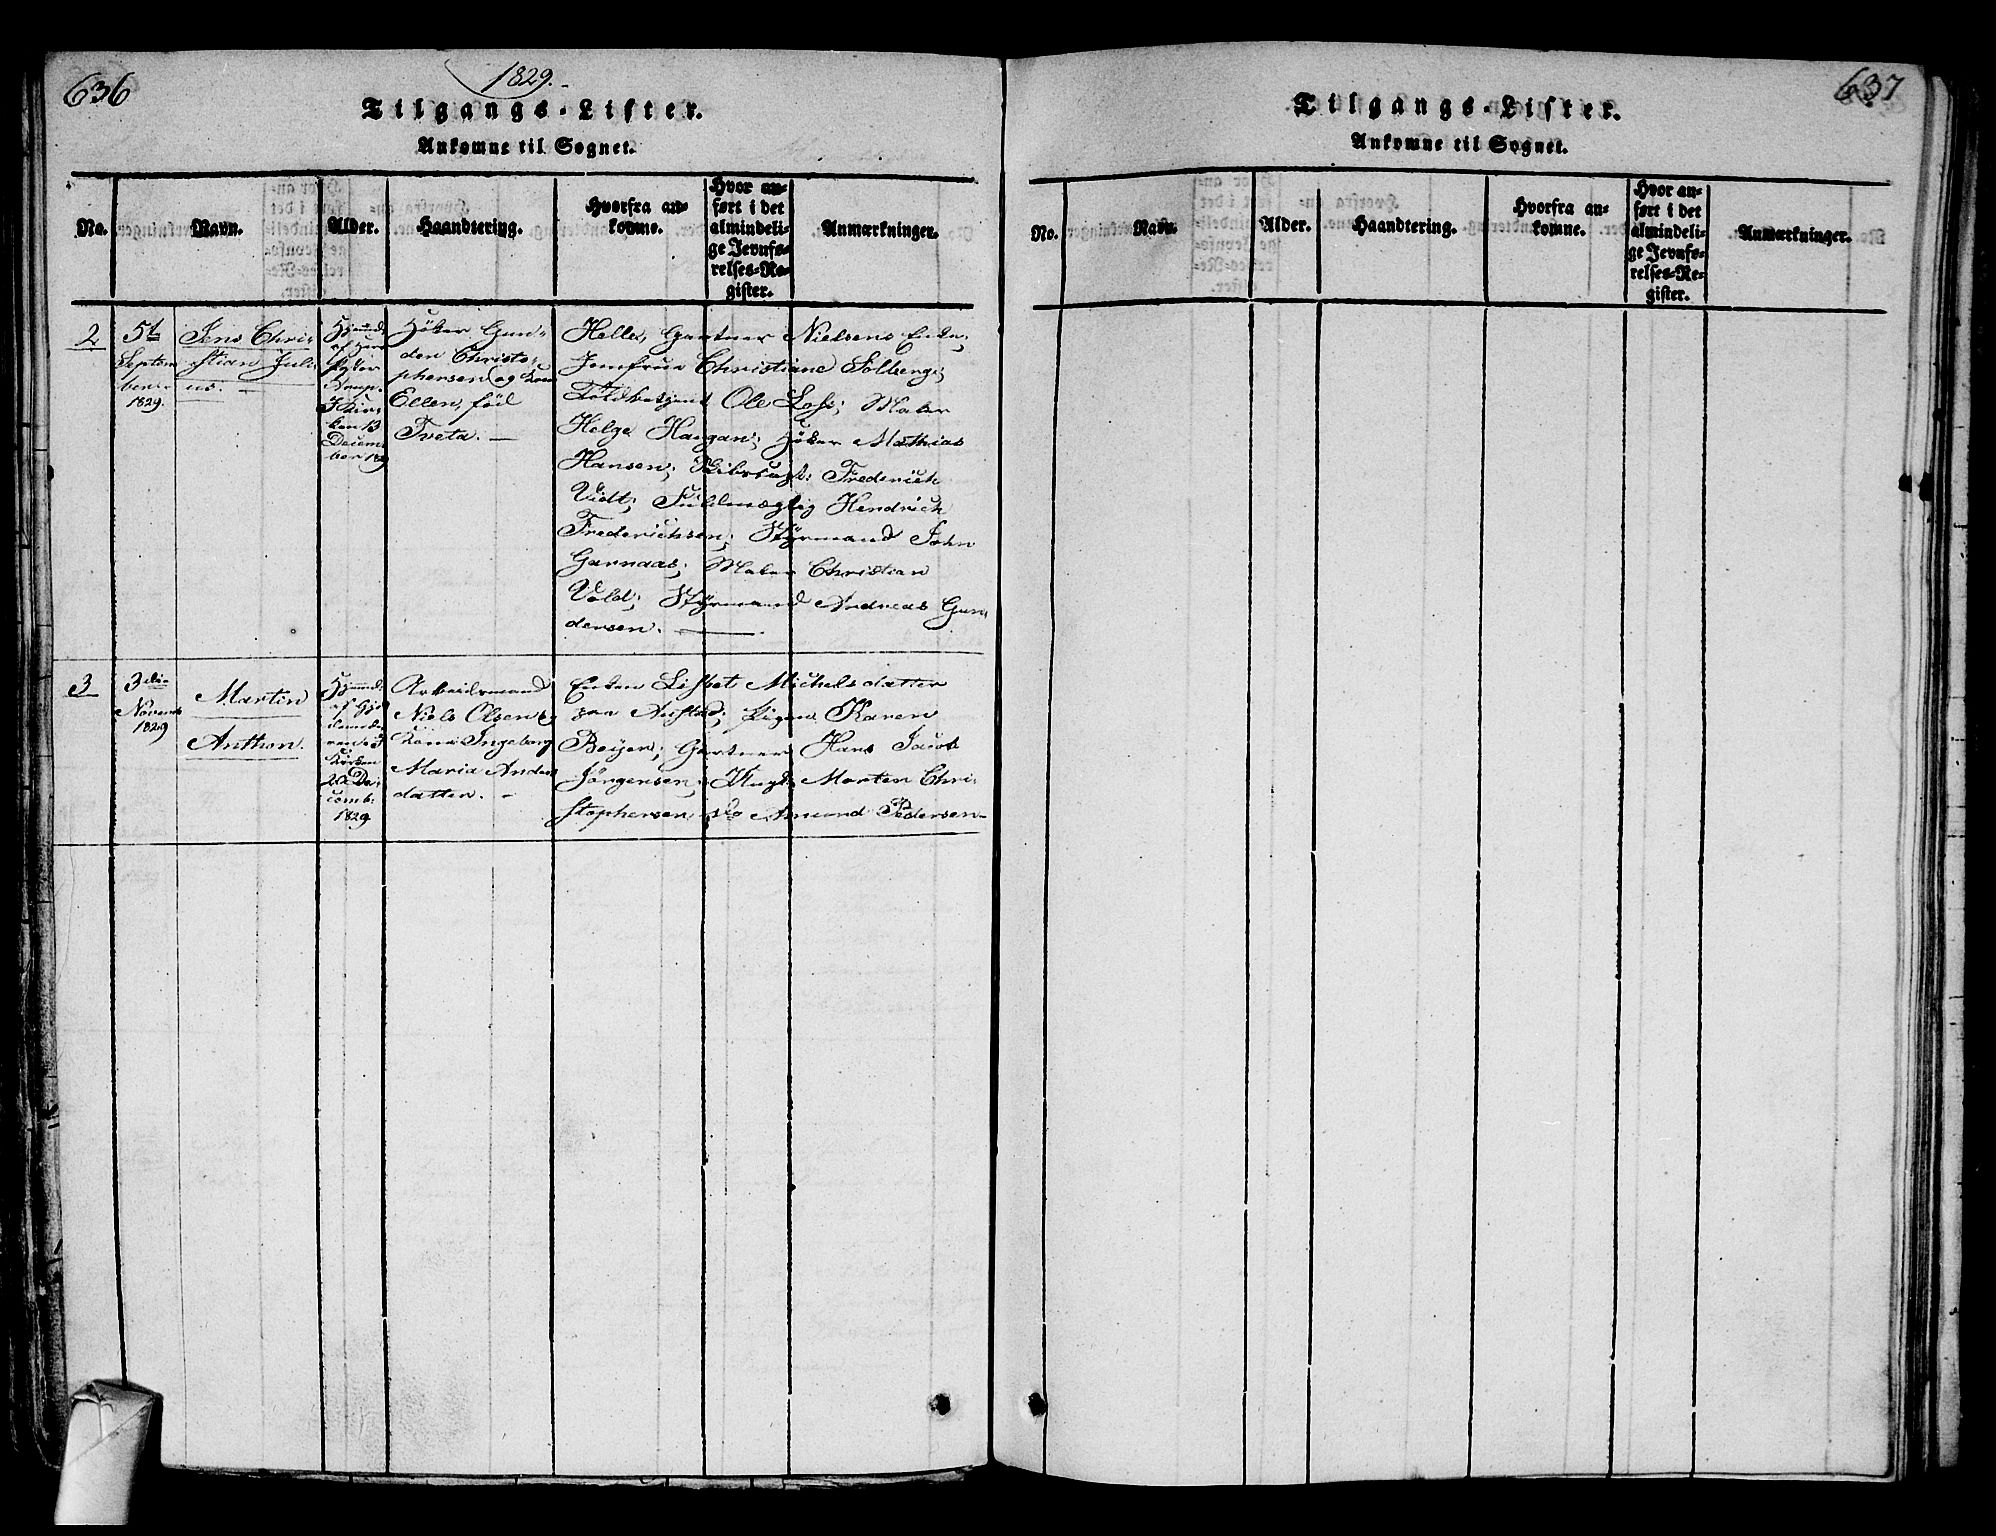 636
1829.
Tilgangs-Lister.
Ankomne til Sognet.
No.
Navn.
Alder.
Haandtering.
Hvorfra an-
komne.
Hvor an-
ført i det
almindeli-
ge Jevnfø-
relses-Re-
gister.
Anmærkninger.
2
5t
Septem
ber
1829.
Jens Chri-
stian Juli-
us.
Hjemmed.
af
Kirken 13
Decem-
ber 1829
Höker Gun-
den Christo-
phersen og Kone
Ellen, föd
Tveta.
Helle, Gartner Nielsens Enke;
Jomfrue Christiane Solberg;
Toldbetjent Ole; Maler
Helge Haugan; Höker Mathias
Hansen; Frederich
Vidt; Fuldmægtig Hendrich
Frederichsen; Styrmand John
Garnaas; Maler Christian
Vold; Styrmand Andreas Gun-
dersen.
3
3die
Novemb
1829
Martin
Anthon.
Hjemmed.
af
Kirken
De-
cemb:
1829
Arbeidsmand
Niels Olsen og
Kone Ingeborg
Maria Anders
datter.
Enken Lisbet Michelsdatter
Pigen Karen
Beyer; Gartner Hans Jacob
Jörgensen; Morten Chri-
stophersen, do Amund Pedersen
637
Tilgangs-Lister.
Ankomne til Sognet.
No.
Navn.
Alder.
Haandtering.
Hvorfra an-
komne.
Hvor an-
ført i det
almindeli-
ge Jevnfø-
relses-Re-
gister.
Anmærkninger.